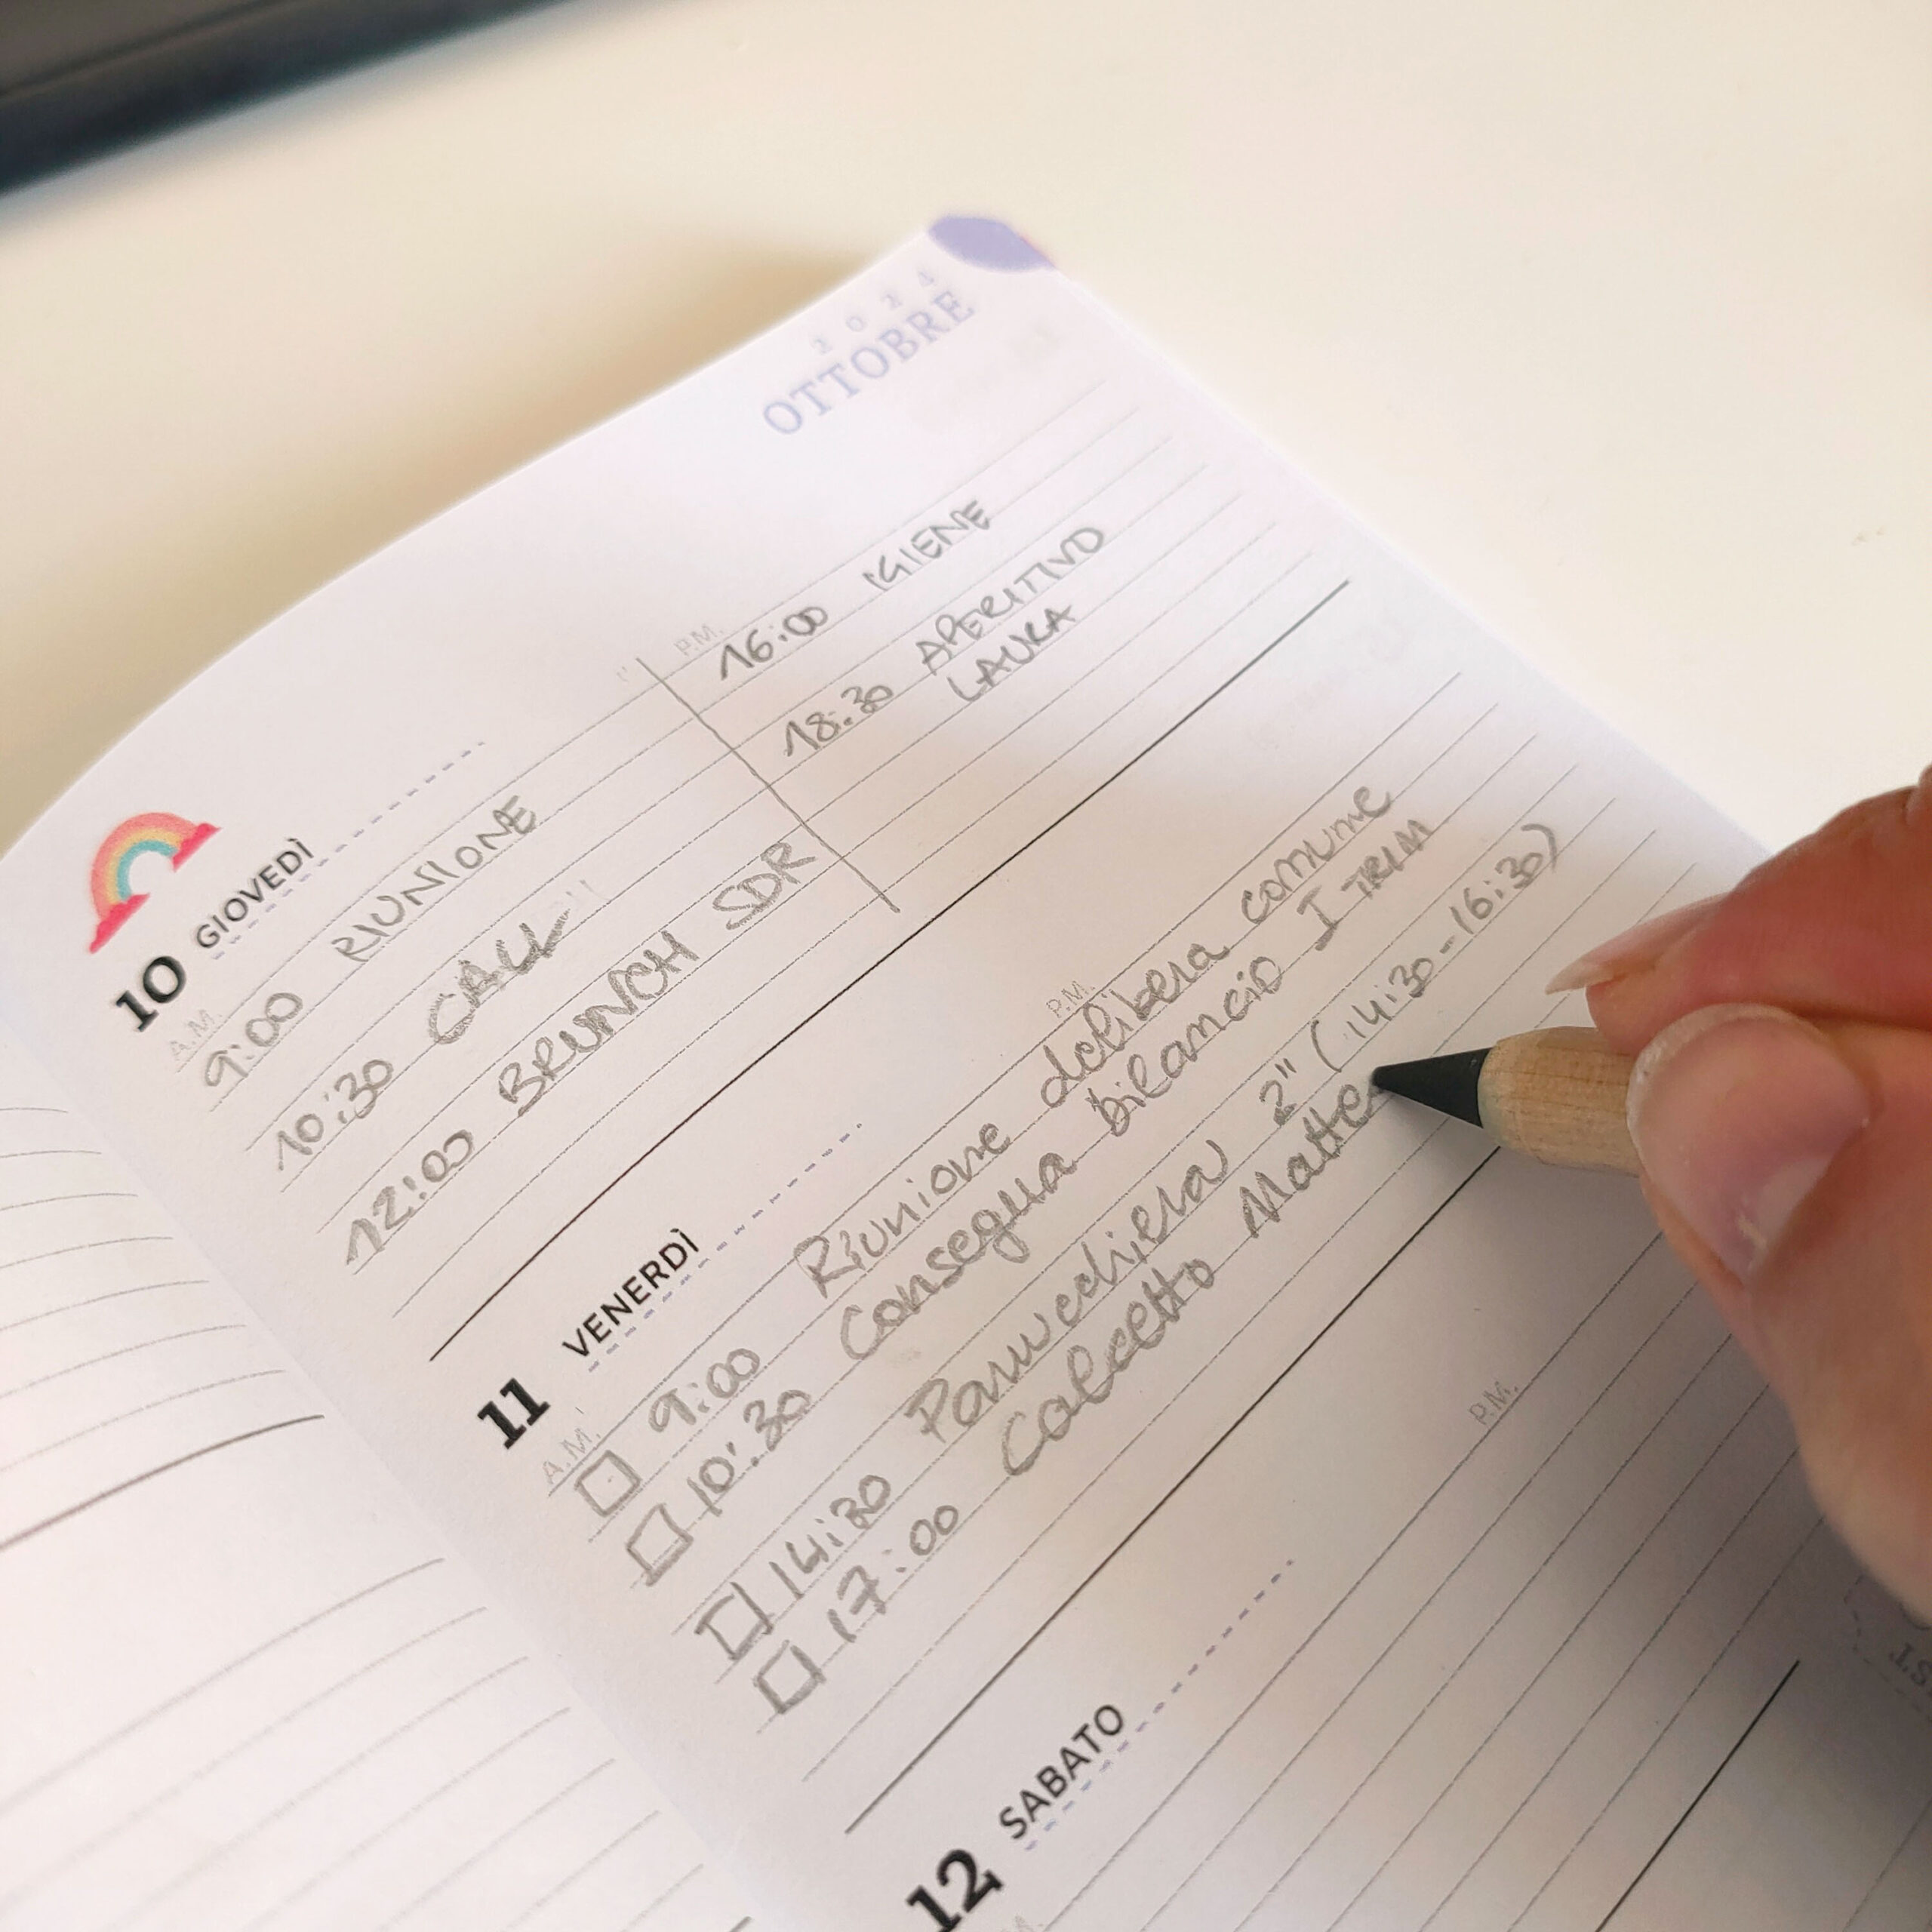 2024
OTTOBRE
10 GIOVEDÌ
A.M.
9:00 RIUNIONE
10:30 CALL
12:00 BRUNCH SDR
P.M.
16:00 IGIENE
18:30 APERITIVO
LAURA
11 VENERDÌ
A.M.
P.M.
9:00 Riunione delibera comune
10:30 Consegna bilancio I TRIM
14:30 Parrucchiera 2" (14:30-16:30)
17:00 Calcetto Matteo
12 SABATO
P.M.